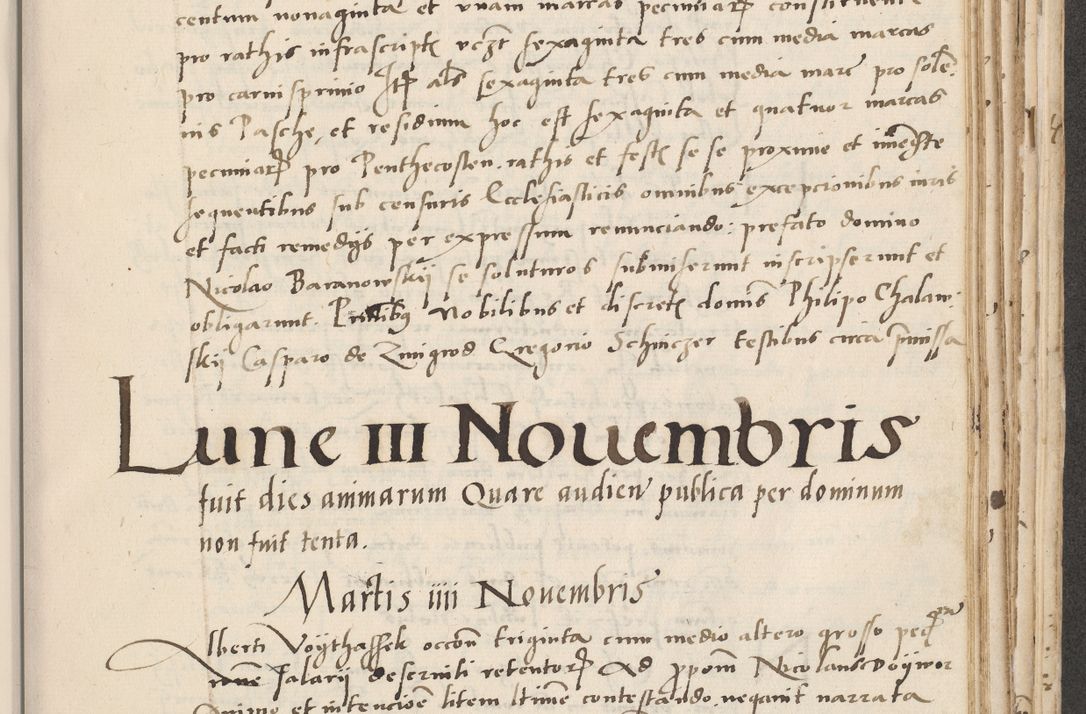 centum nonaginta et vnam marcas pecuniarꝝ
pro rathis infrascriptꝭ vcꝫt sexaginta tres cum media marcas
pro carnisprivio Itꝫ als sexaginta tres cum media marc pro solē
nis Pasche, et residuum hoc est sexaginta et quatuor marcas
pecuniarꝝ pro Penthecosten. rathis et festꝭ se se proxime et
sequentibus sub censuris Ecclesiasticis omnibus excepcionibus iuris
et facti remedijs per expressum renunciando: prefato domino
Nicolao Baranowskij se soluturos submiserunt inscripserunt et
obligarunt. Nobilibus et discretꝭ domīs Philipo Chalaw:
skij Casparo de Zmigrod Gregorio Schniczer testibus circa p̄missa
Lune III Nouembris
fuit dies animarum Quare audien publica per dominum
non fuit tenta.
Martis iiii Nouembris
Alberti Voythassek occōn triginta cum medio altero grosso
salarij deseruiti retentorꝝ Ad ꝓpom̄ Nicolaus Doywor
Animo et intencioē litem ltimē contestando. negauit narrata